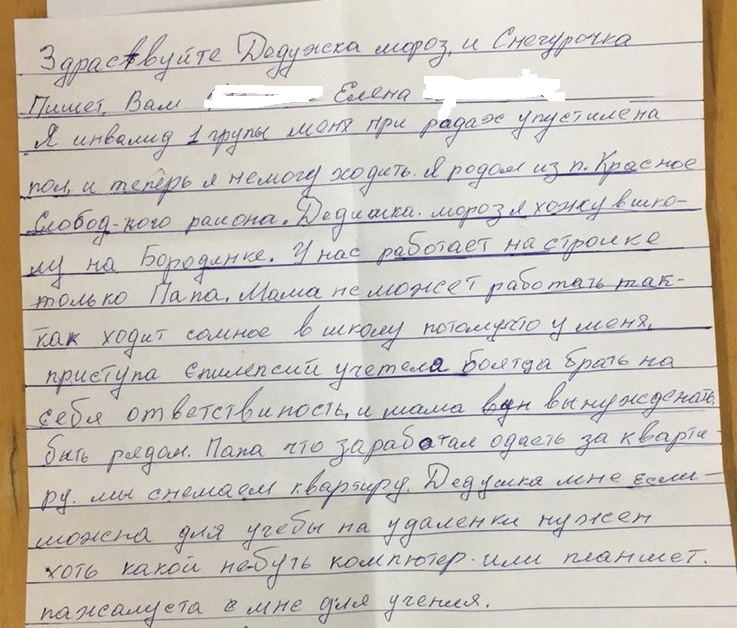 Здраствуйте Дедужска мороз, и Снегурочка
Пишет, Вам Елена
Я инвалид 1 групы меня при радах упустилена
пол, и теперь я немогу ходить. Я родом из п. Красное
Слобод-кого района. Дедишка. мороз я хожу вшко-
лу на Бородинке. У нас работает на стройке
только Папа. Мама не может работать так-
как ходит сомное в школу потомучто у меня,
приступа епилепсий учетела боятда брать на
себя ответствиность, и мама вынужденать
быть рядом. Папа что заработал одасть за кварти-
ру. мы снемаем квартиру. Дедушка мне если-
можна для учебы на удаленки нужен
хоть какой небуть компютер-или планшет.
пажалуста мне для учения.